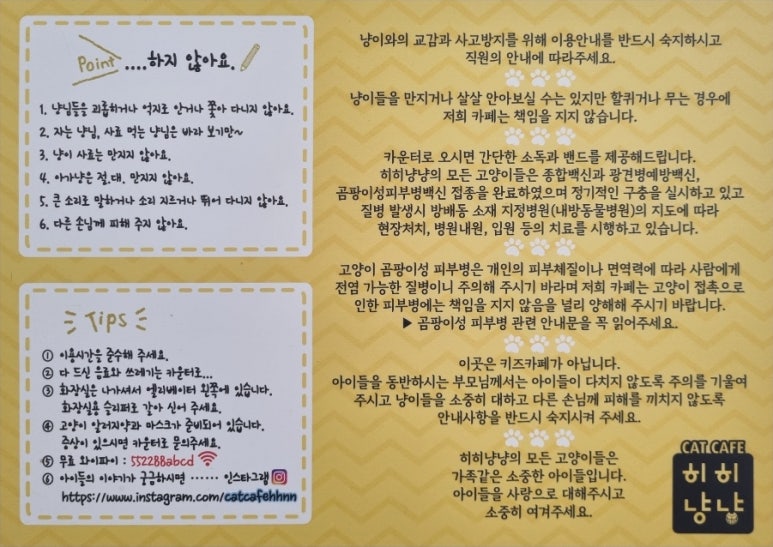 Point ....하지 않아요.
1. 냥님들을 괴롭히거나 억지로 안거나 쫓아 다니지 않아요.
2. 자는 냥님, 사료 먹는 냥님은 바라 보기만~
3. 냥이 사료는 만지지 않아요.
4. 아가냥은 절.대. 만지지 않아요.
5. 큰 소리로 말하거나 소리 지르거나 뛰어 다니지 않아요.
6. 다른 손님께 피해 주지 않아요.
Tips
① 이용시간을 준수해 주세요.
② 다 드신 음료와 쓰레기는 카운터로...
③ 화장실은 나가셔서 엘리베이터 왼쪽에 있습니다.
화장실용 슬리퍼로 갈아 신어 주세요.
④ 고양이 알러지약과 마스크가 준비되어 있습니다.
증상이 있으시면 카운터로 문의주세요.
⑤ 무료 와이파이 : 552288abcd
⑥ 아이들의 이야기가 궁금하시면 ...... 인스타그램
https://www.instagram.com/catcafehhnn
냥이와의 교감과 사고방지를 위해 이용안내를 반드시 숙지하시고
직원의 안내에 따라주세요.
냥이들을 만지거나 살살 안아보실 수는 있지만 할퀴거나 무는 경우에
저희 카페는 책임을 지지 않습니다.
카운터로 오시면 간단한 소독과 밴드를 제공해드립니다.
히히냥냥의 모든 고양이들은 종합백신과 광견병예방백신,
곰팡이성피부병백신 접종을 완료하였으며 정기적인 구충을 실시하고 있고
질병 발생시 방배동 소재 지정병원(내방동물병원)의 지도에 따라
현장처치, 병원내원, 입원 등의 치료를 시행하고 있습니다.
고양이 곰팡이성 피부병은 개인의 피부체질이나 면역력에 따라 사람에게
전염 가능한 질병이니 주의해 주시기 바라며 저희 카페는 고양이 접촉으로
인한 피부병에는 책임을 지지 않음을 널리 양해해 주시기 바랍니다.
▶ 곰팡이성 피부병 관련 안내문을 꼭 읽어주세요.
이곳은 키즈카페가 아닙니다.
아이들을 동반하시는 부모님께서는 아이들이 다치지 않도록 주의를 기울여
주시고 냥이들을 소중히 대하고 다른 손님께 피해를 끼치지 않도록
안내사항을 반드시 숙지시켜 주세요.
히히냥냥의 모든 고양이들은
가족같은 소중한 아이들입니다.
아이들을 사랑으로 대해주시고
소중히 여겨주세요.
CAT CAFE
히히
냥냥